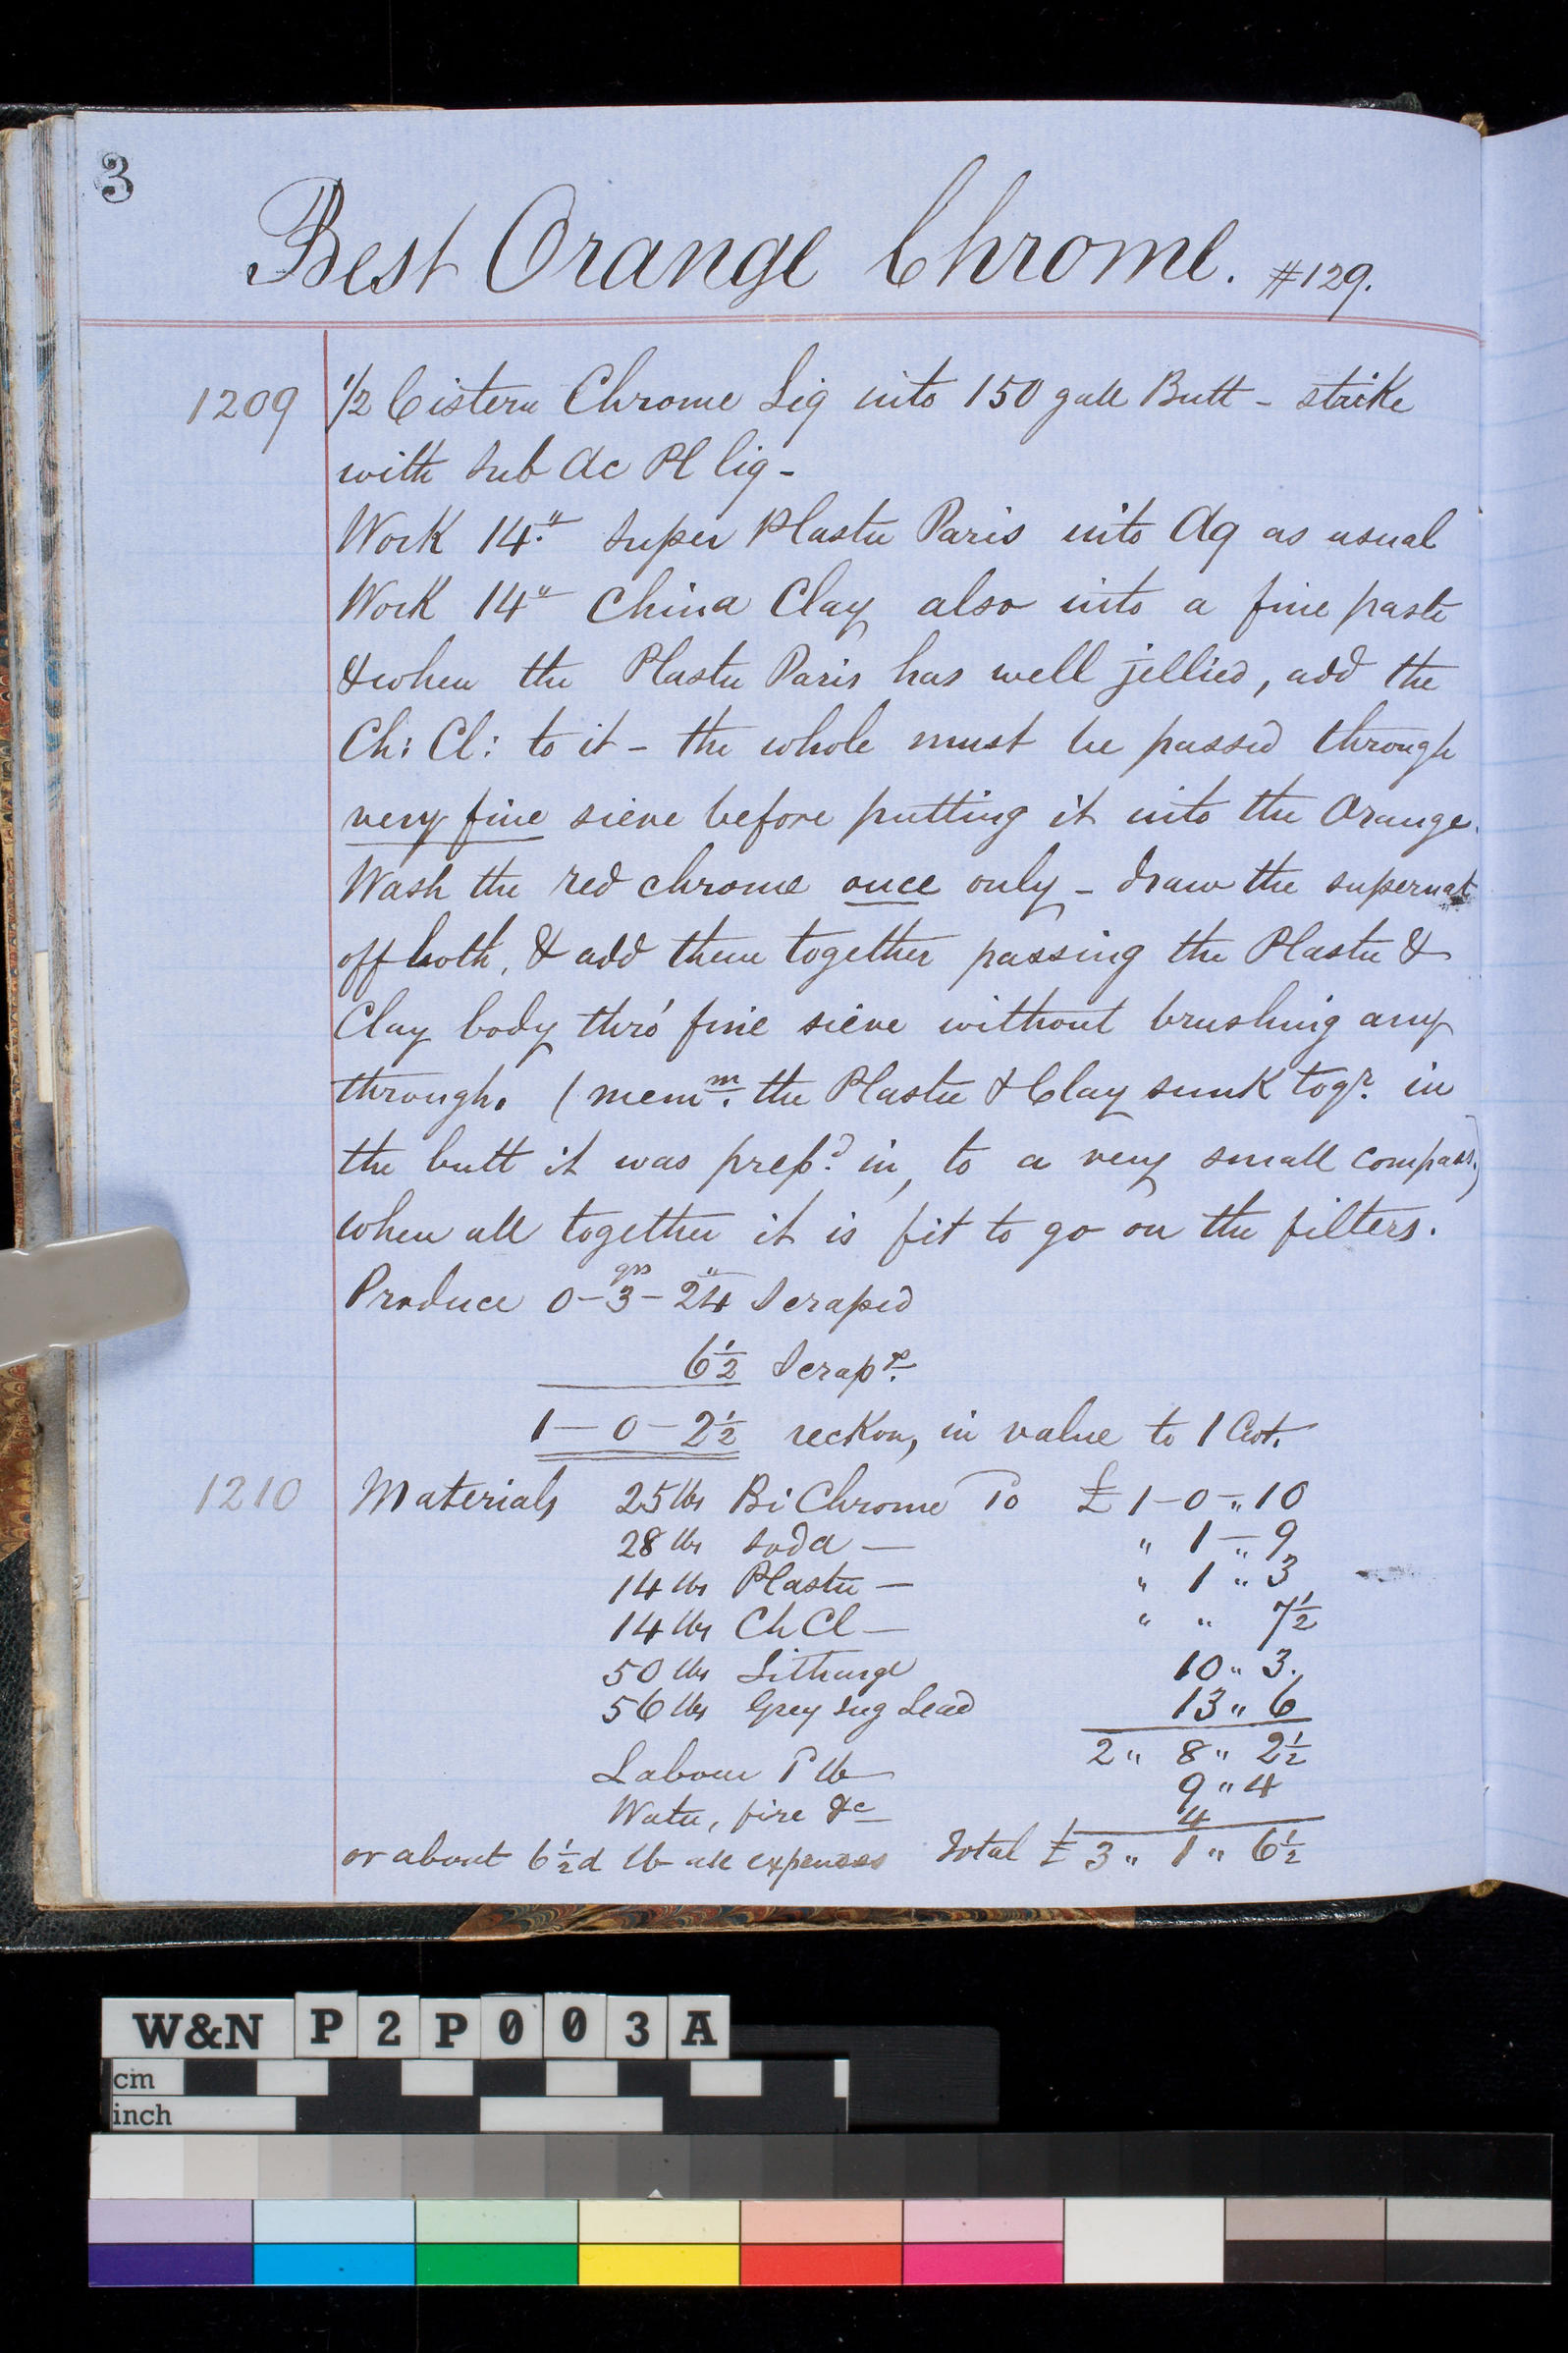 3
Best Orange Chrome. #129.
1209 1/2 Cistern Chrome Liq into 150 gall Butt - strike
with Sub Ac Pl liq -
Work 14 lb Super Plaster Paris into Aq as usual
Work 14 lb China Clay also into a fine paste
& when the Plaster Paris has well jellied, add the
Ch: Cl: to it - the whole must be passed through
very fine sieve before putting it into the Orange.
Wash the red chrome once only - draw the supernat
off both, & add them together passing the Plaster &
Clay body thro' fine sieve without brushing any
through. (memm. the Plaster & Clay sunk togr. in
the butt it was prepd. in, to a very small compass,)
when all together it is fit to go on the filters.
qrs lb
Produce 0-3-24 Scraped
6½ Scraps.
1-0-2½ reckon, in value to 1 Cwt.
1210 Materials 25 lbs Bi Chrome Po £ 1-0-"10
28 lbs Soda — " 1-"9
14 lbs Plaster — " 1 " 3
14 lbs Ch Cl — " " 7½
50 lbs Litharge 10 " 3.
56 lbs Grey Sug Lead 13 " 6
2 " 8 " 2½
Labour P lb 9 " 4
Water, fire &c 4
or about 6½d lb all expenses Total £ 3 " 1 " 6½
W&N P2P003A
cm
inch